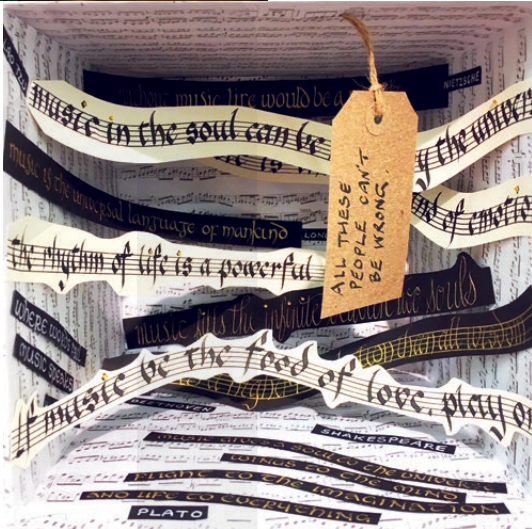 music life would be a
NIETZSCHE
music in the soul can be
y the univer
music is the universal language of mankind
of emotio
the rhythm of life is a powerful
ALL THESE
PEOPLE CAN'T
BE WRONG.
music fills the infinite between two souls
WHERE WORDS FAIL
MUSIC SPEAKS
than all wisdom
if music be the food of love, play o
BEETHOVEN
SHAKESPEARE
MUSIC GIVES A SOUL TO THE UNIVERSE
WINGS TO THE MIND
FLIGHT TO THE IMAGINATION
AND LIFE TO EVERYTHING
PLATO